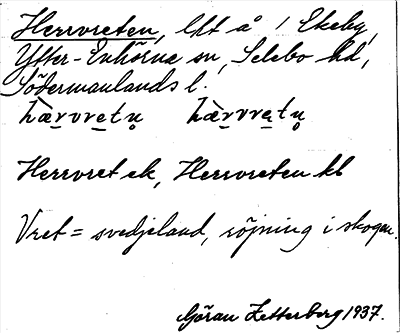 Herrvreten, llt å / Ekeby,
Ytter-Enhörna sn, Selebo hd,
Södermanlands l.
hærvretu̥ hærvrətu̥
Herrvret ek, Herrvreten kb
Vret = svedjeland, röjning i skogen.
Göran Zetterberg 1937.